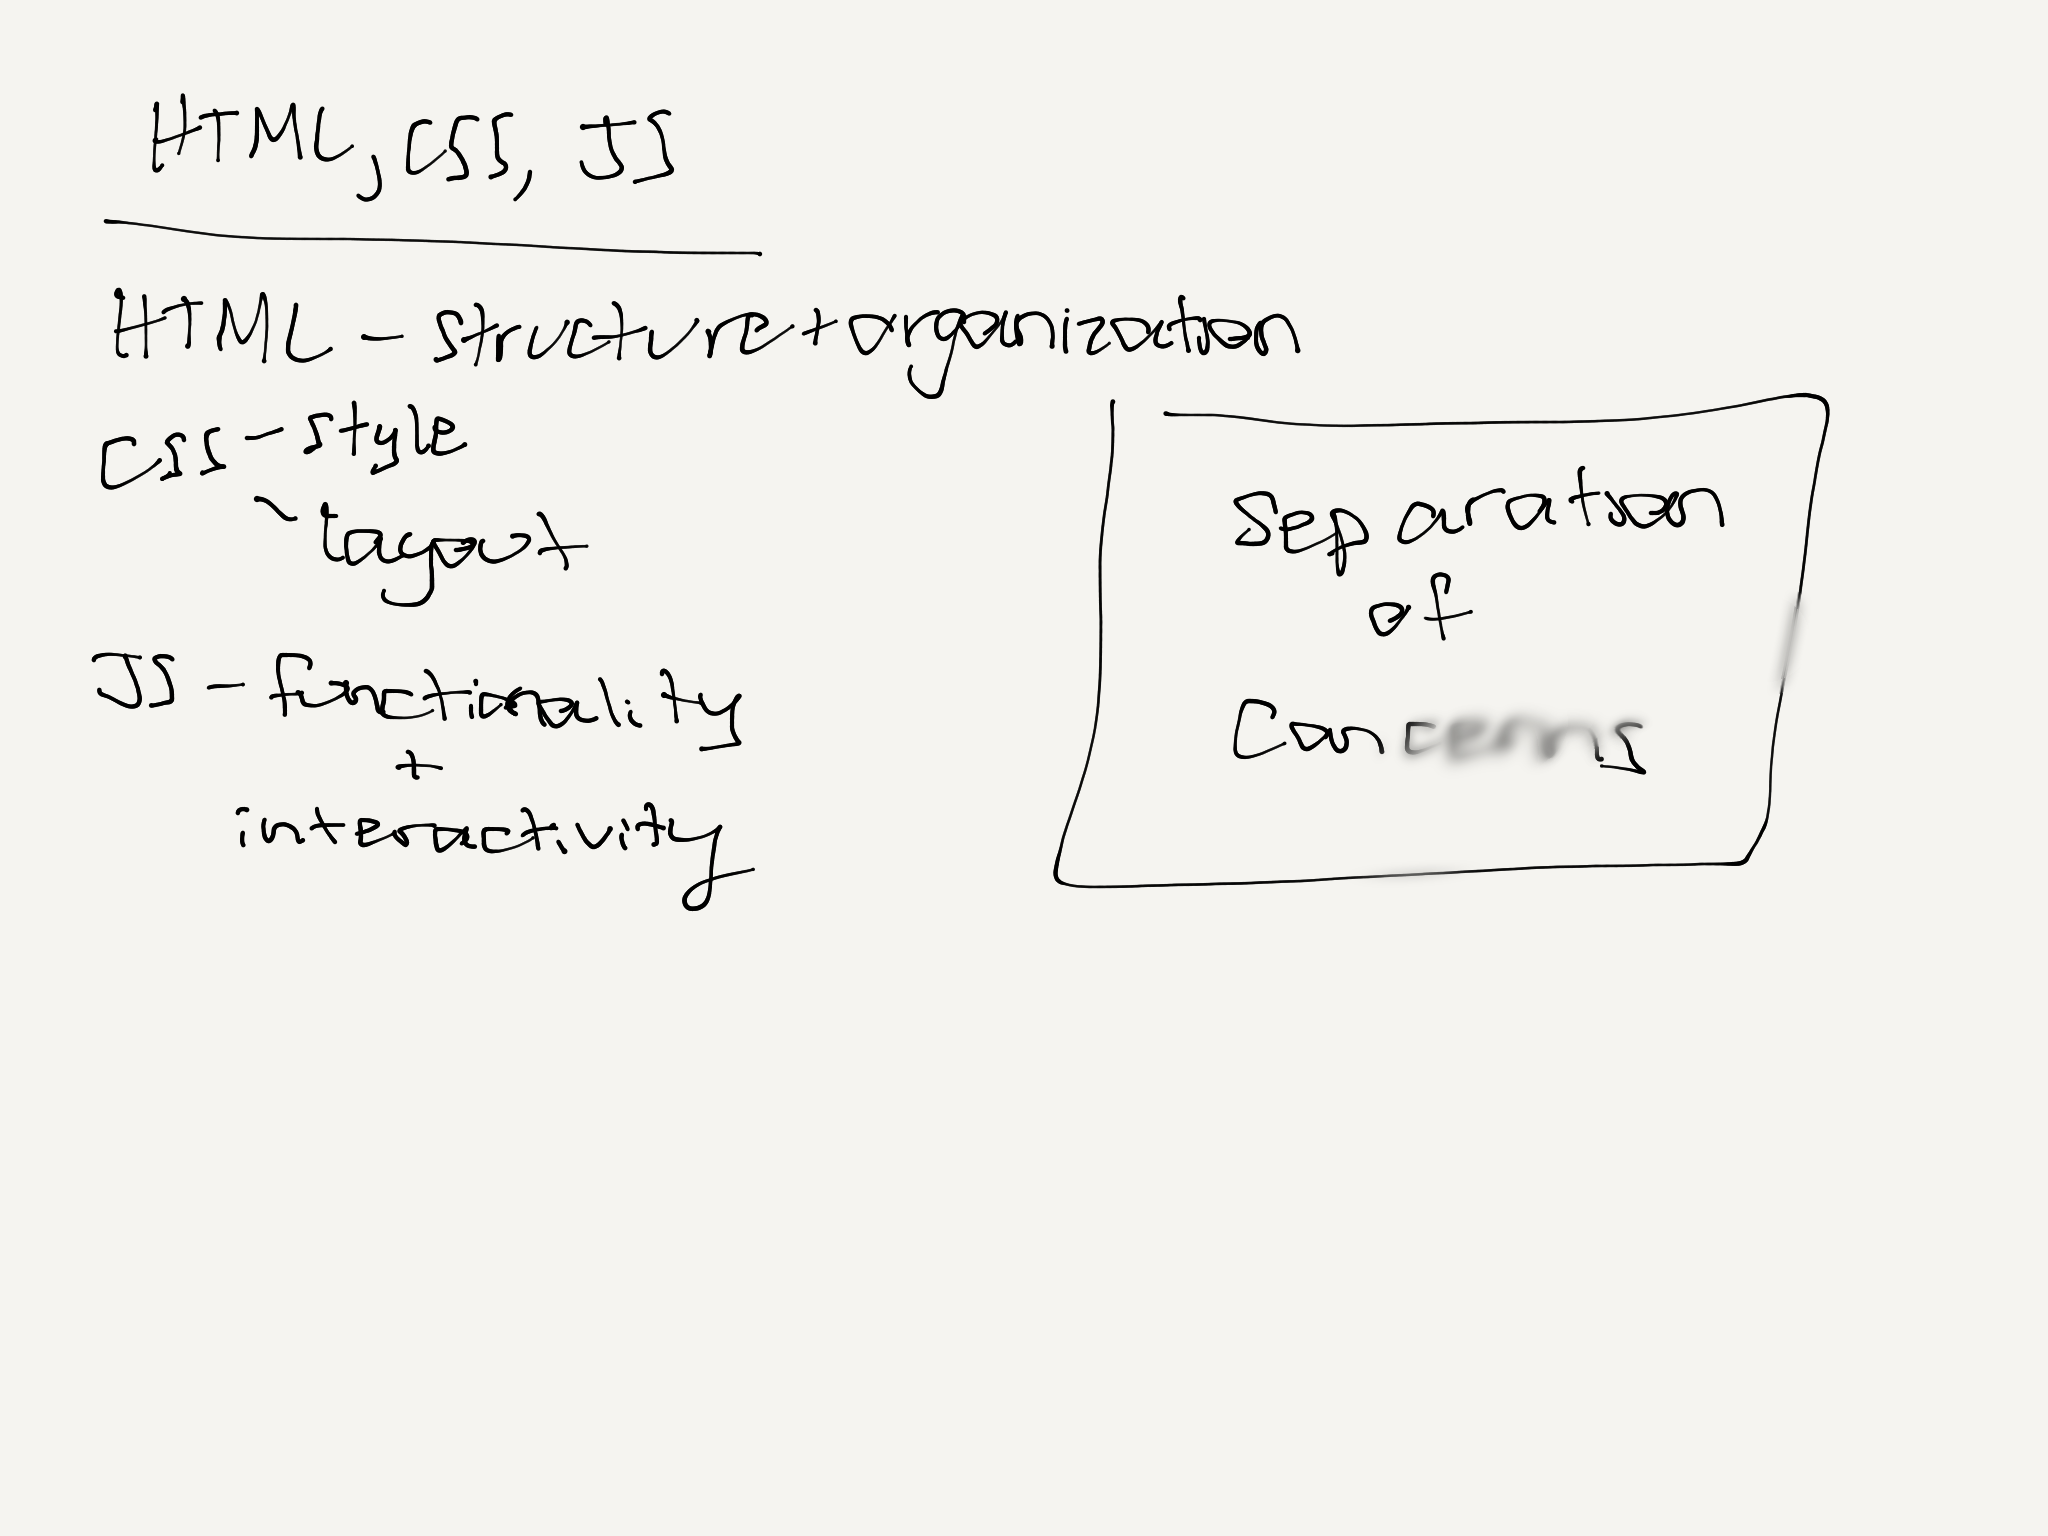 HTML, CSS, JS
HTML - structure + organization
CSS - style
- layout
JS - functionality
+
interactivity
Separation
of
Concerns